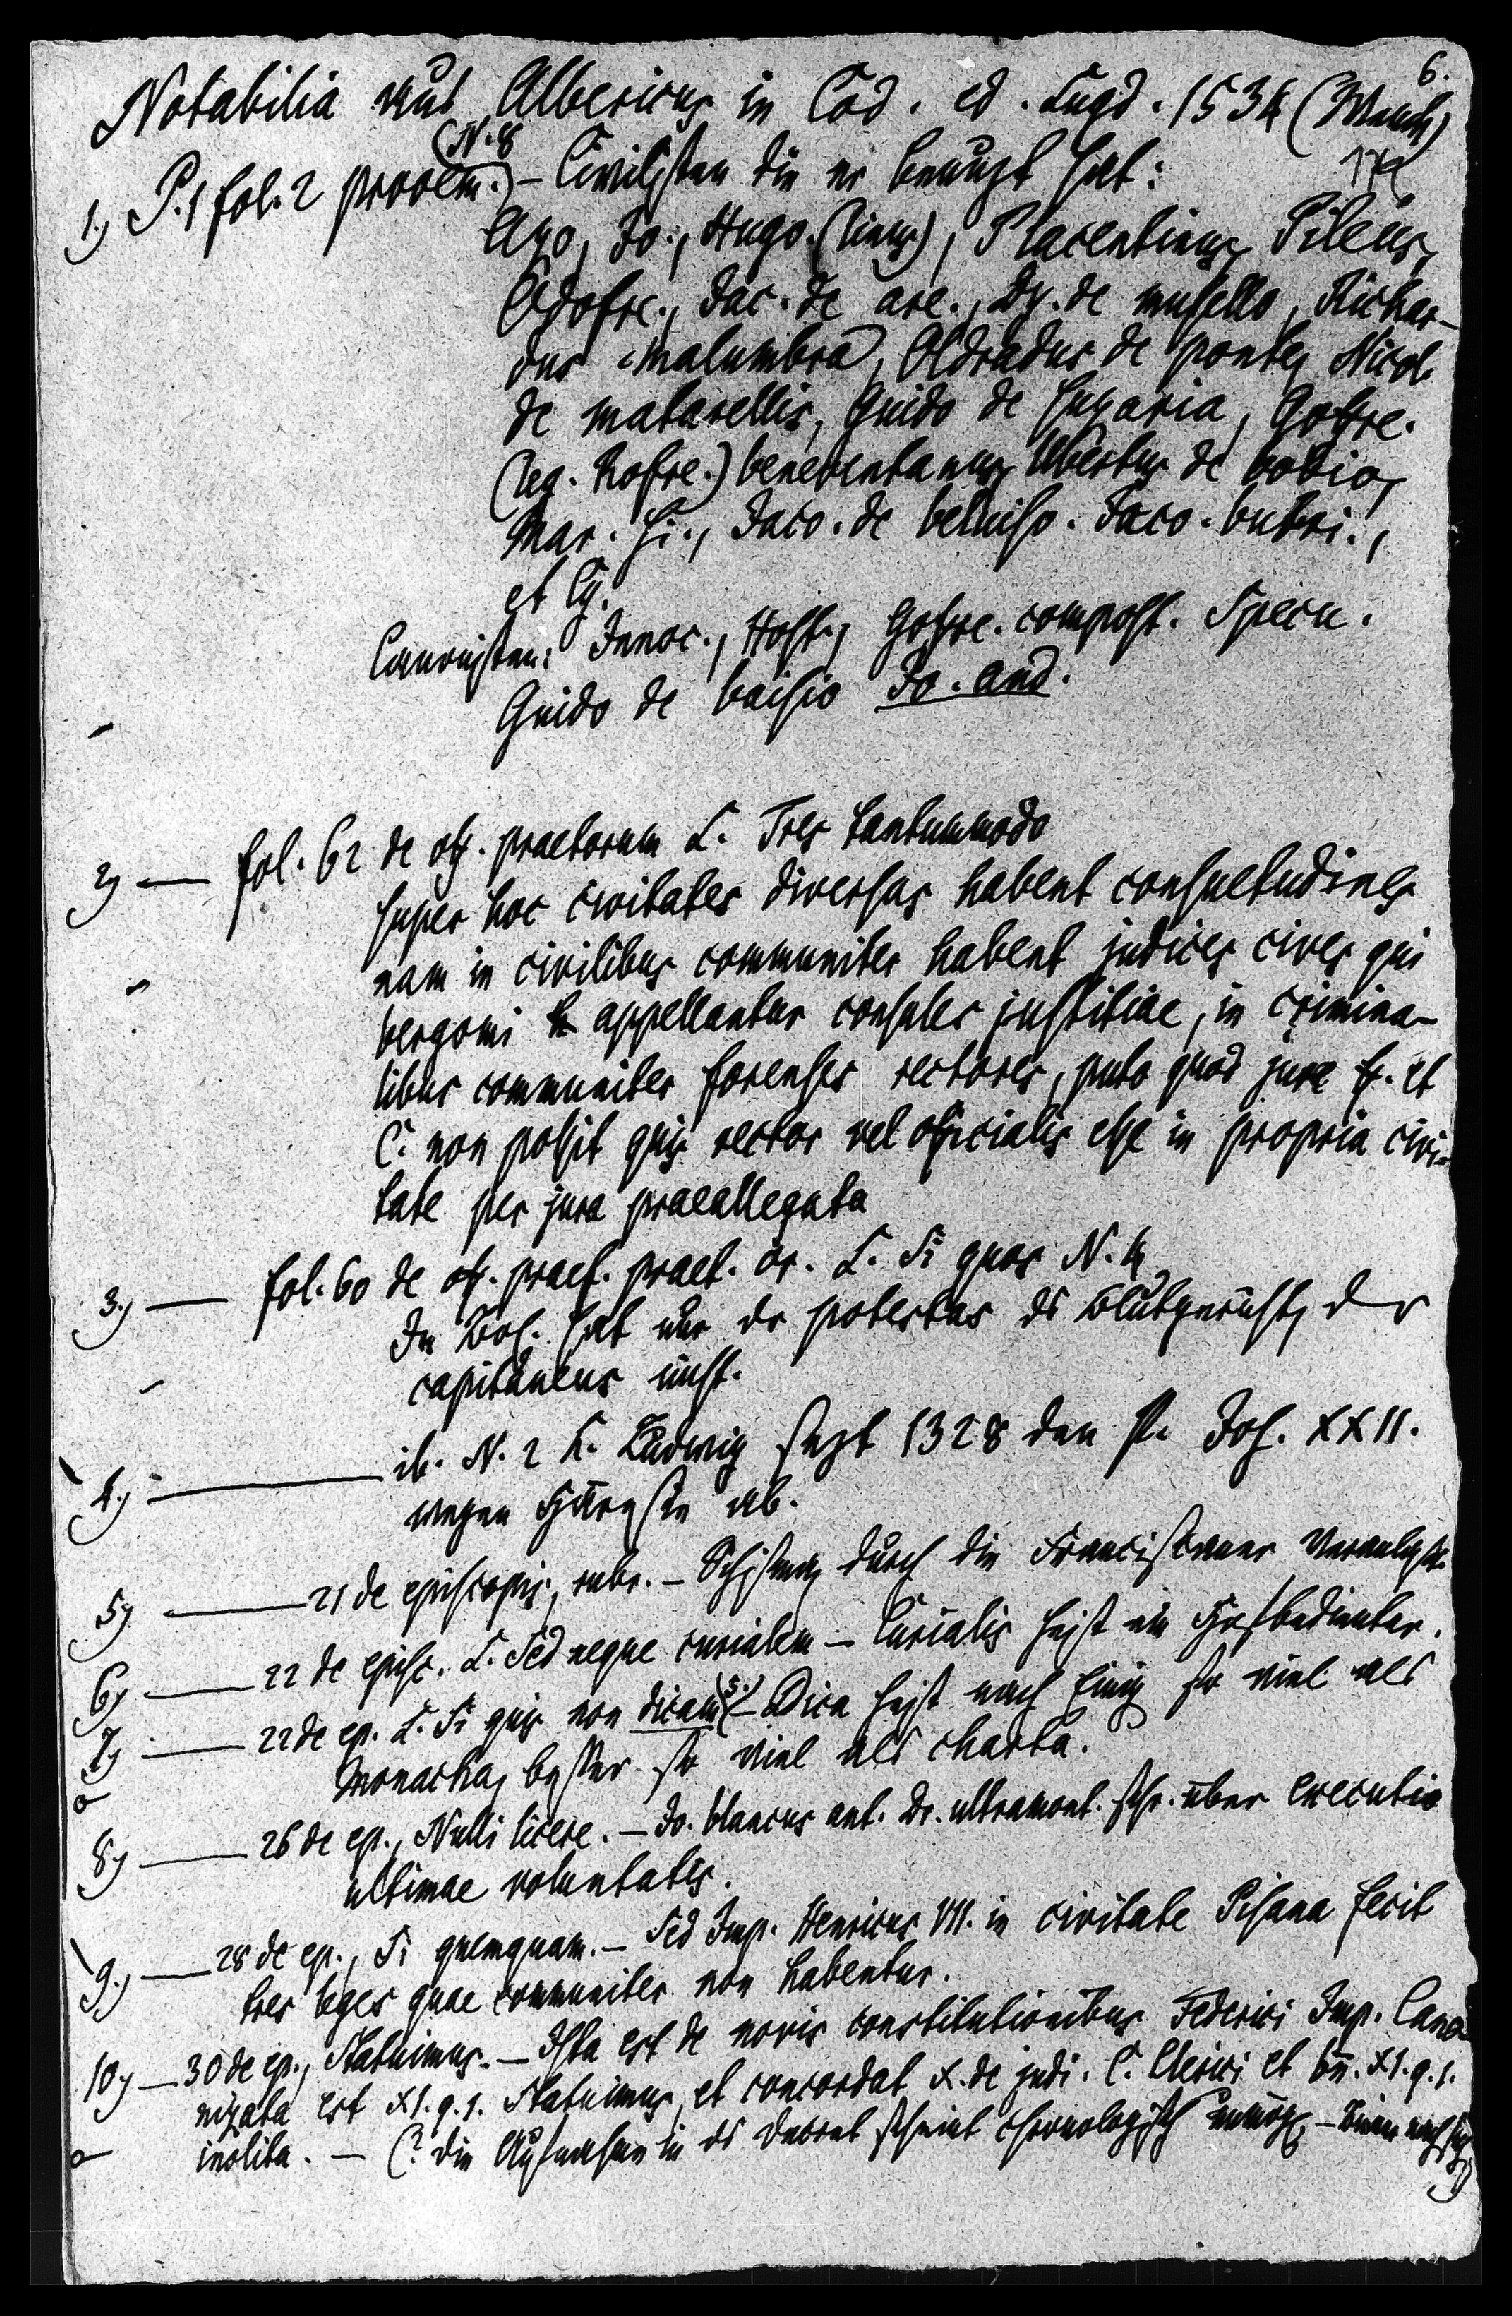 6.
Notabilia aus Albericus in Cod. ed. Lugd. 1534
(N. 8
1.) P. 1 fol. 2 prooem.) – Civilisten die er benuzt hat:
Azo, Jo., Hugo. (linus), Placentinus, Pileus,
Odofre., Jac. de are., Dy. de musello, Richar-
dus malumbra, Oldradus de ponte, Nicol.
de matarellis, Guido de suzaria, Gofre.
(leg. Rofre.) beneventanus, Ubertus de bobio,
Mar. si., Jaco. de belviso. Jaco. butri.,
et Cy.
Canonisten: Innoc., Host., Gofre. compost. Specu.
Guido de baisio Jo. and.
2) — fol. 62 de off. praetorum L. Tres tantummodo
super hoc civitates diversas habent consuetudines
nam in civilibus communiter habent judices cives qui
bergomi appellantur consules justitiae, in crimina-
libus communiter forenses rectores, puto quod jure ff. et
C. non possit quis rector vel officialis esse in propria civi-
tate per jura praeallegata
3.) — fol. 60 de off. praef. praet. or. L. Si quos N. 4
In Bol. hat nur der potestas das Blutgericht, der
capitaneus nicht.
4.) — ib. N. 2 K. Ludwig sezt 1328 den P. Joh. XXII.
wegen Häresie ab.
5) — 21 de episcopis, rubr. – Schisma durch die Franciscaner
6) — 22 de episc. L. Sed neque curialem – Curialis heißt ein Hofbedienter.
7) — 22 de ep. L. Si quis non dicam – Dica heißt nach Einig. so viel als
monacha, besser so viel als charta.
8) — 26 de ep., Nulli licere. – Jo. blancus ant. Dr. ultramont. schr. über executio
ultimae voluntatis.
9.) — 28 de ep., Si quemquam. – Sed Imp. Henricus VII. in civitate Pisana fecit
tres leges quae communiter non habentur.
10) — 30 de ep., Statuimus. – Ista est de novis constitutionibus Federici Imp. Cano-
nizata est XI. q. 1. Statuimus, et concordat X. de judi. C. Clerici et XI. q. 1.
inolita. – (? die Aufnahme in das Decret scheint chronologisch